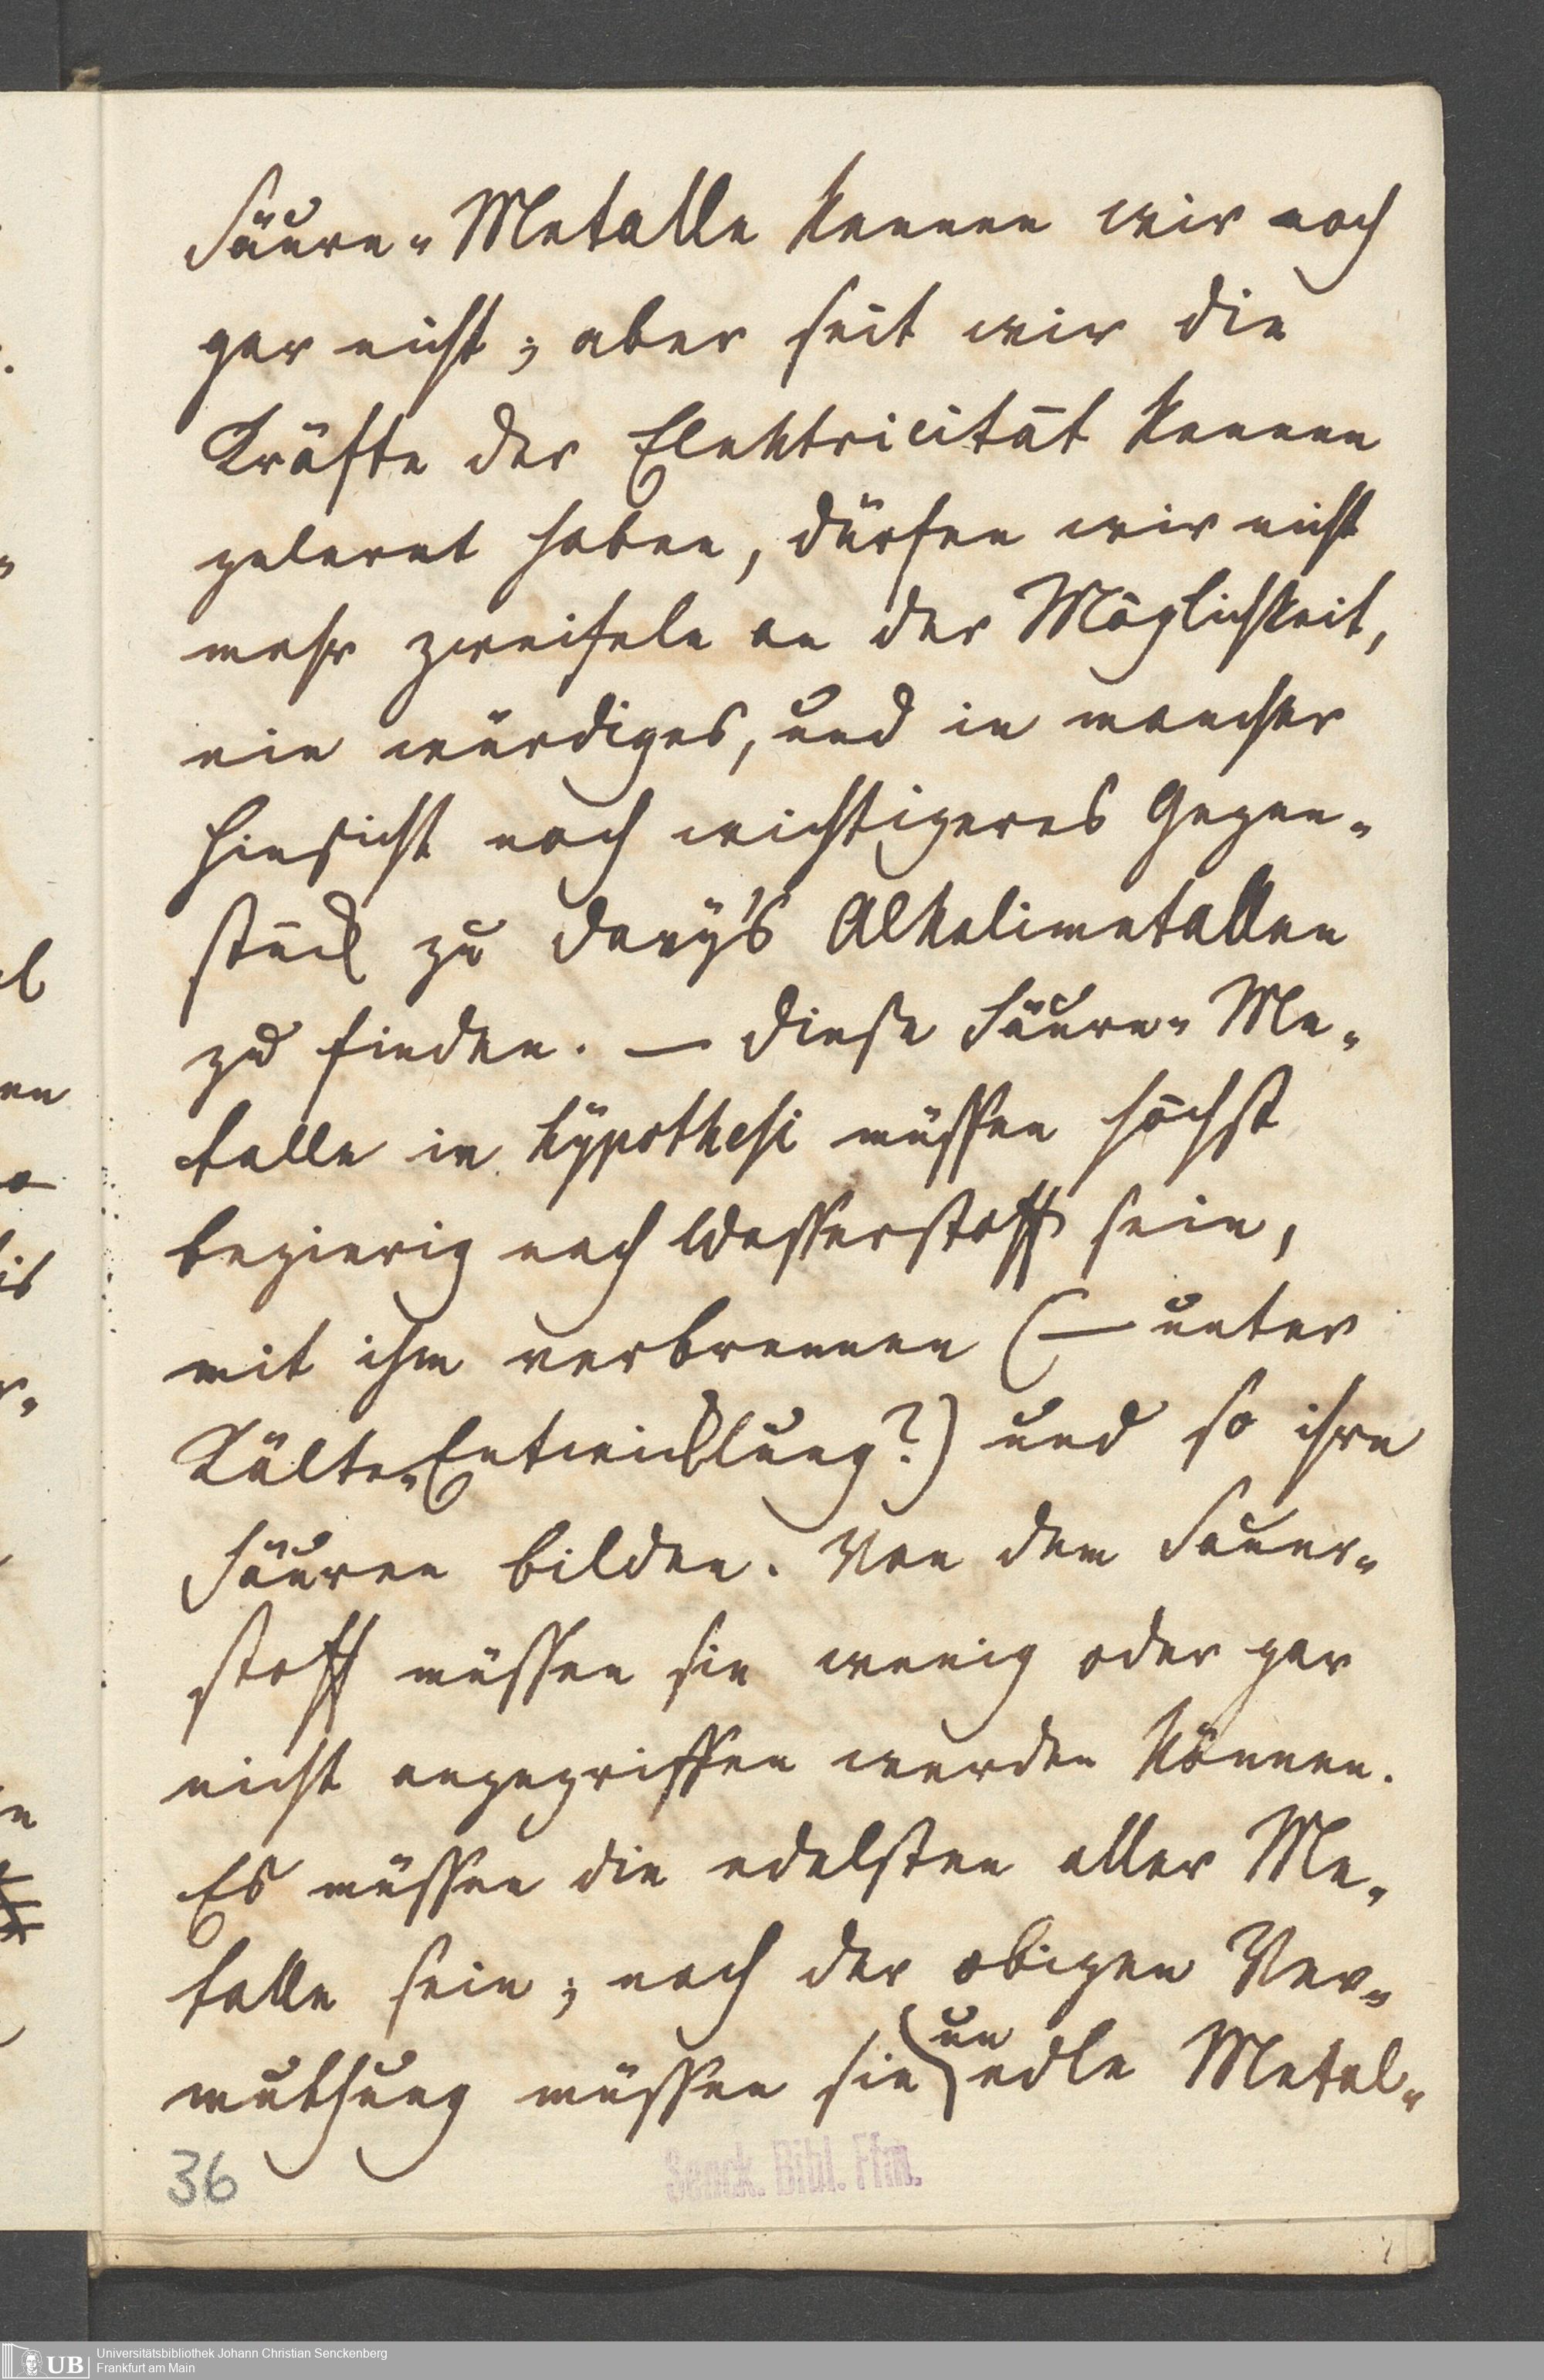 Säure-Metalle kennen wir noch
gar nicht; aber seit wir die
Kräfte der Elektricität kennen
gelernt haben, dürfen wir nicht
mehr zweifeln an der Möglichkeit,
ein würdiges, und in mancher
Hinsicht noch wichtigeres Gegen-
stück zu Davy's Alkalimetallen
zu finden. — Diese Säure-Me-
talle in hypothesi müssen höchst
begierig nach Wasserstoff sein,
mit ihm verbrennen (— unter
Kälte-Entwicklung?) und so ihre
Säuren bilden. Von dem Sauer-
stoff müssen sie wenig oder gar
nicht angegriffen werden können.
Es müssen die edelsten aller Me-
talle sein; nach der obigen Ver-
muthung müssen sie unedle Metal-
36
Senck. Bibl. Ffm.
UB
Universitätsbibliothek Johann Christian Senckenberg
Frankfurt am Main